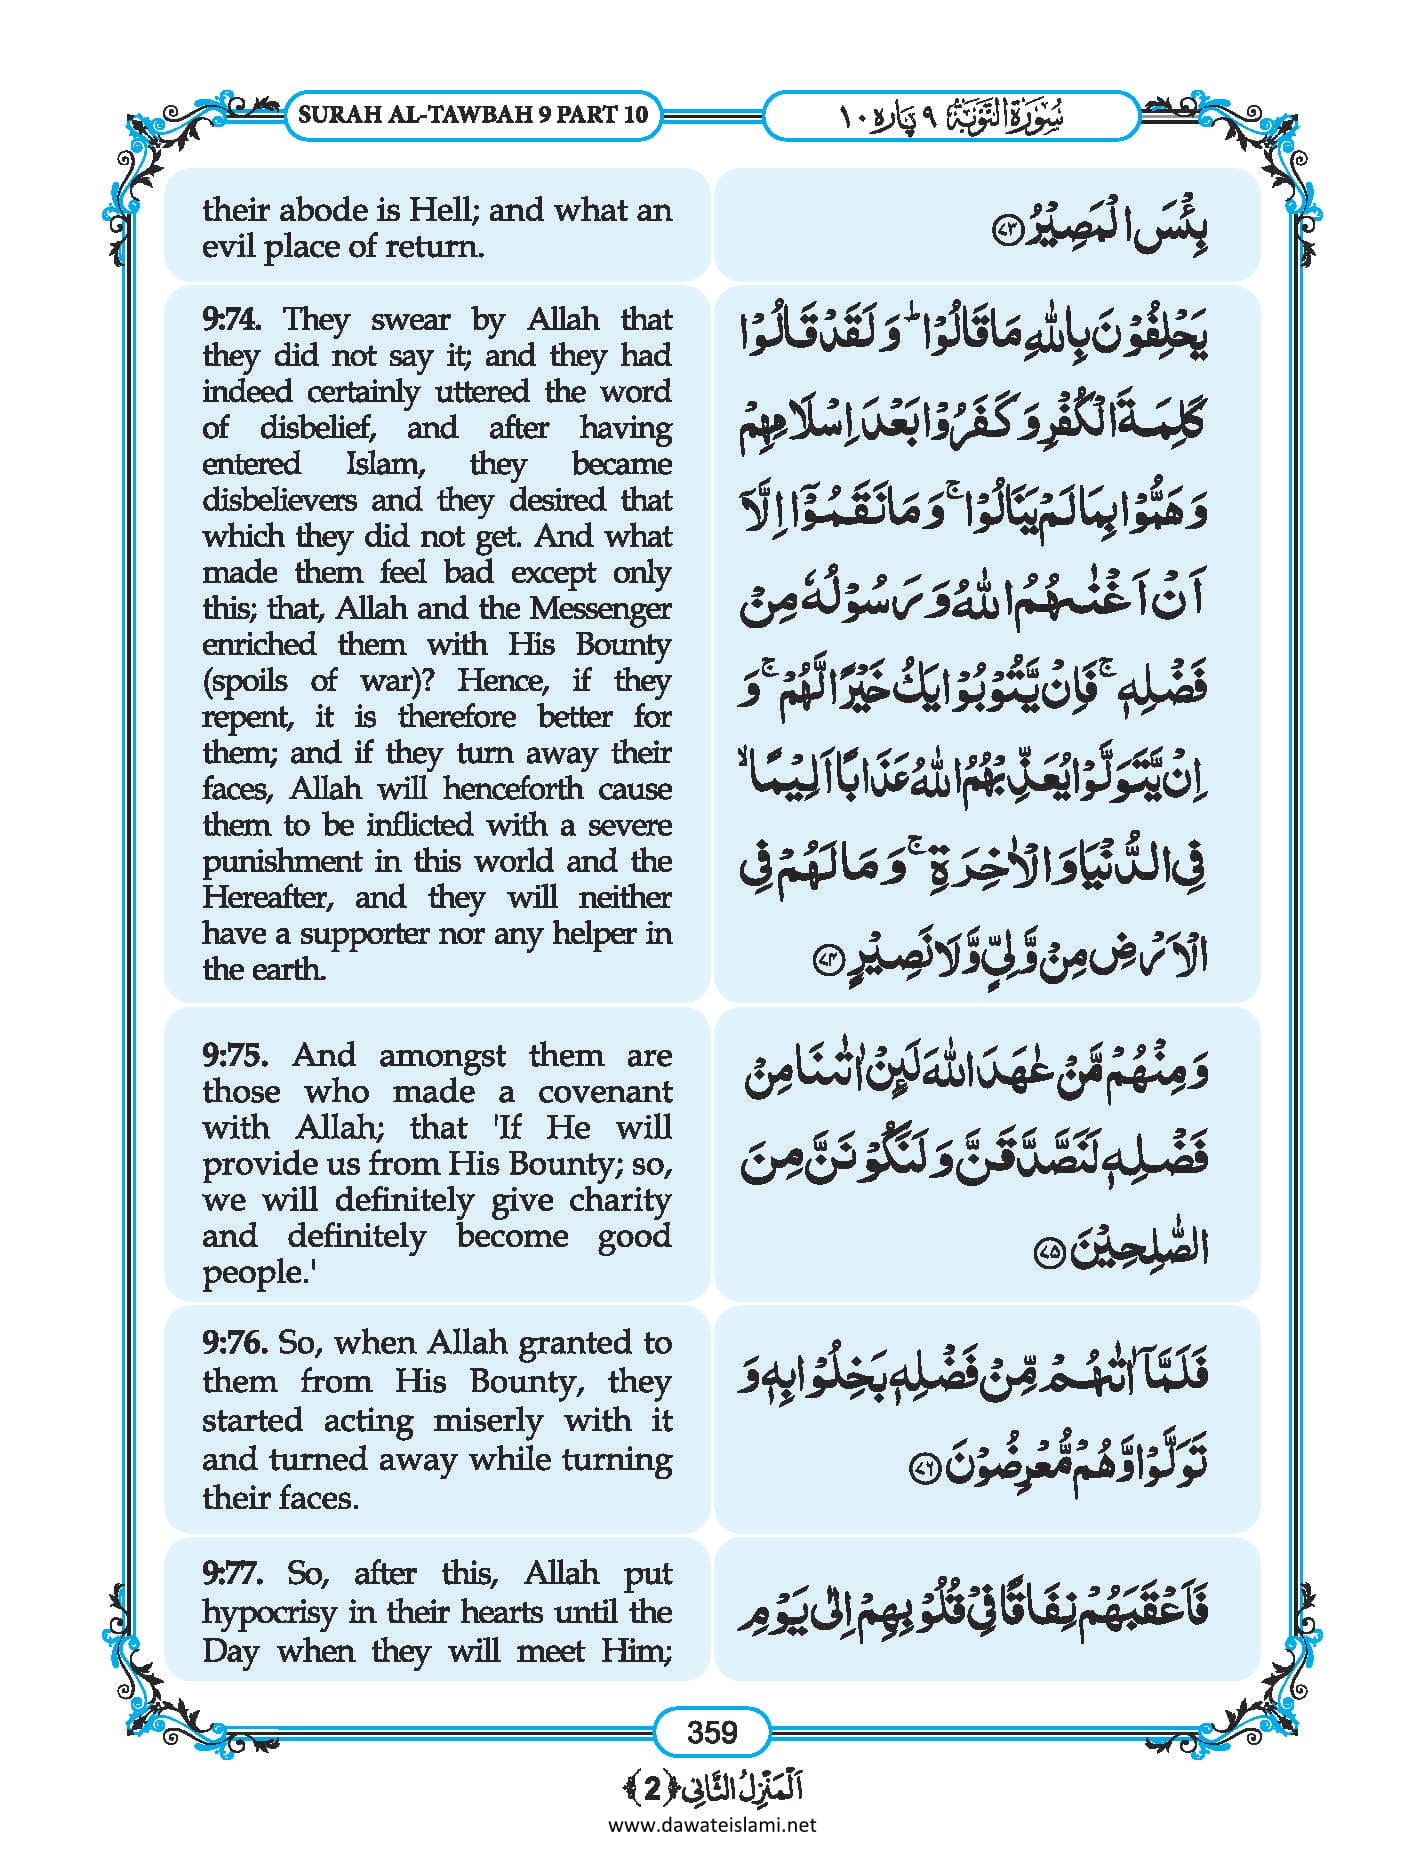 SURAH AL-TAWBAH 9 PART 10
سُوۡرَةُ التَّوۡبَة ٩ پاره ١٠
their abode is Hell; and what an
evil place of return.
بِئْسَ الْمَصِيْرُ ﴿٧٣﴾
9:74. They swear by Allah that
they did not say it; and they had
indeed certainly uttered the word
of disbelief, and after having
entered Islam, they became
disbelievers and they desired that
which they did not get. And what
made them feel bad except only
this; that, Allah and the Messenger
enriched them with His Bounty
(spoils of war)? Hence, if they
repent, it is therefore better for
them; and if they turn away their
faces, Allah will henceforth cause
them to be inflicted with a severe
punishment in this world and the
Hereafter, and they will neither
have a supporter nor any helper in
the earth.
يَحْلِفُوْنَ بِاللّٰهِ مَا قَالُوْا ؕ وَ لَقَدْ قَالُوْا
كَلِمَةَ الْكُفْرِ وَ كَفَرُوْا بَعْدَ اِسْلَامِهِمْ
وَ هَمُّوْا بِمَا لَمْ يَنَالُوْا ۚ وَ مَا نَقَمُوْۤا اِلَّاۤ
اَنْ اَغْنٰىهُمُ اللّٰهُ وَ رَسُوْلُهٗ مِنْ
فَضْلِهٖ ۚ فَاِنْ يَّتُوْبُوْا يَكُ خَيْرًا لَّهُمْ ۚ وَ
اِنْ يَّتَوَلَّوْا يُعَذِّبْهُمُ اللّٰهُ عَذَابًا اَلِيْمًا ۙ
فِي الدُّنْيَا وَ الْاٰخِرَةِ ۚ وَ مَا لَهُمْ فِي
الْاَرْضِ مِنْ وَّلِيٍّ وَّ لَا نَصِيْرٍ ﴿٧٤﴾
9:75. And amongst them are
those who made a covenant
with Allah; that 'If He will
provide us from His Bounty; so,
we will definitely give charity
and definitely become good
people.'
وَ مِنْهُمْ مَّنْ عٰهَدَ اللّٰهَ لَىِٕنْ اٰتٰىنَا مِنْ
فَضْلِهٖ لَنَصَّدَّقَنَّ وَ لَنَكُوْنَنَّ مِنَ
الصّٰلِحِيْنَ ﴿٧٥﴾
9:76. So, when Allah granted to
them from His Bounty, they
started acting miserly with it
and turned away while turning
their faces.
فَلَمَّاۤ اٰتٰىهُمْ مِّنْ فَضْلِهٖ بَخِلُوْا بِهٖ وَ
تَوَلَّوْا وَّ هُمْ مُّعْرِضُوْنَ ﴿٧٦﴾
9:77. So, after this, Allah put
hypocrisy in their hearts until the
Day when they will meet Him;
فَاَعْقَبَهُمْ نِفَاقًا فِيْ قُلُوْبِهِمْ اِلٰى يَوْمِ
359
اَلْمَنْزِلُ الثَّانِي ﴿2﴾
www.dawateislami.net